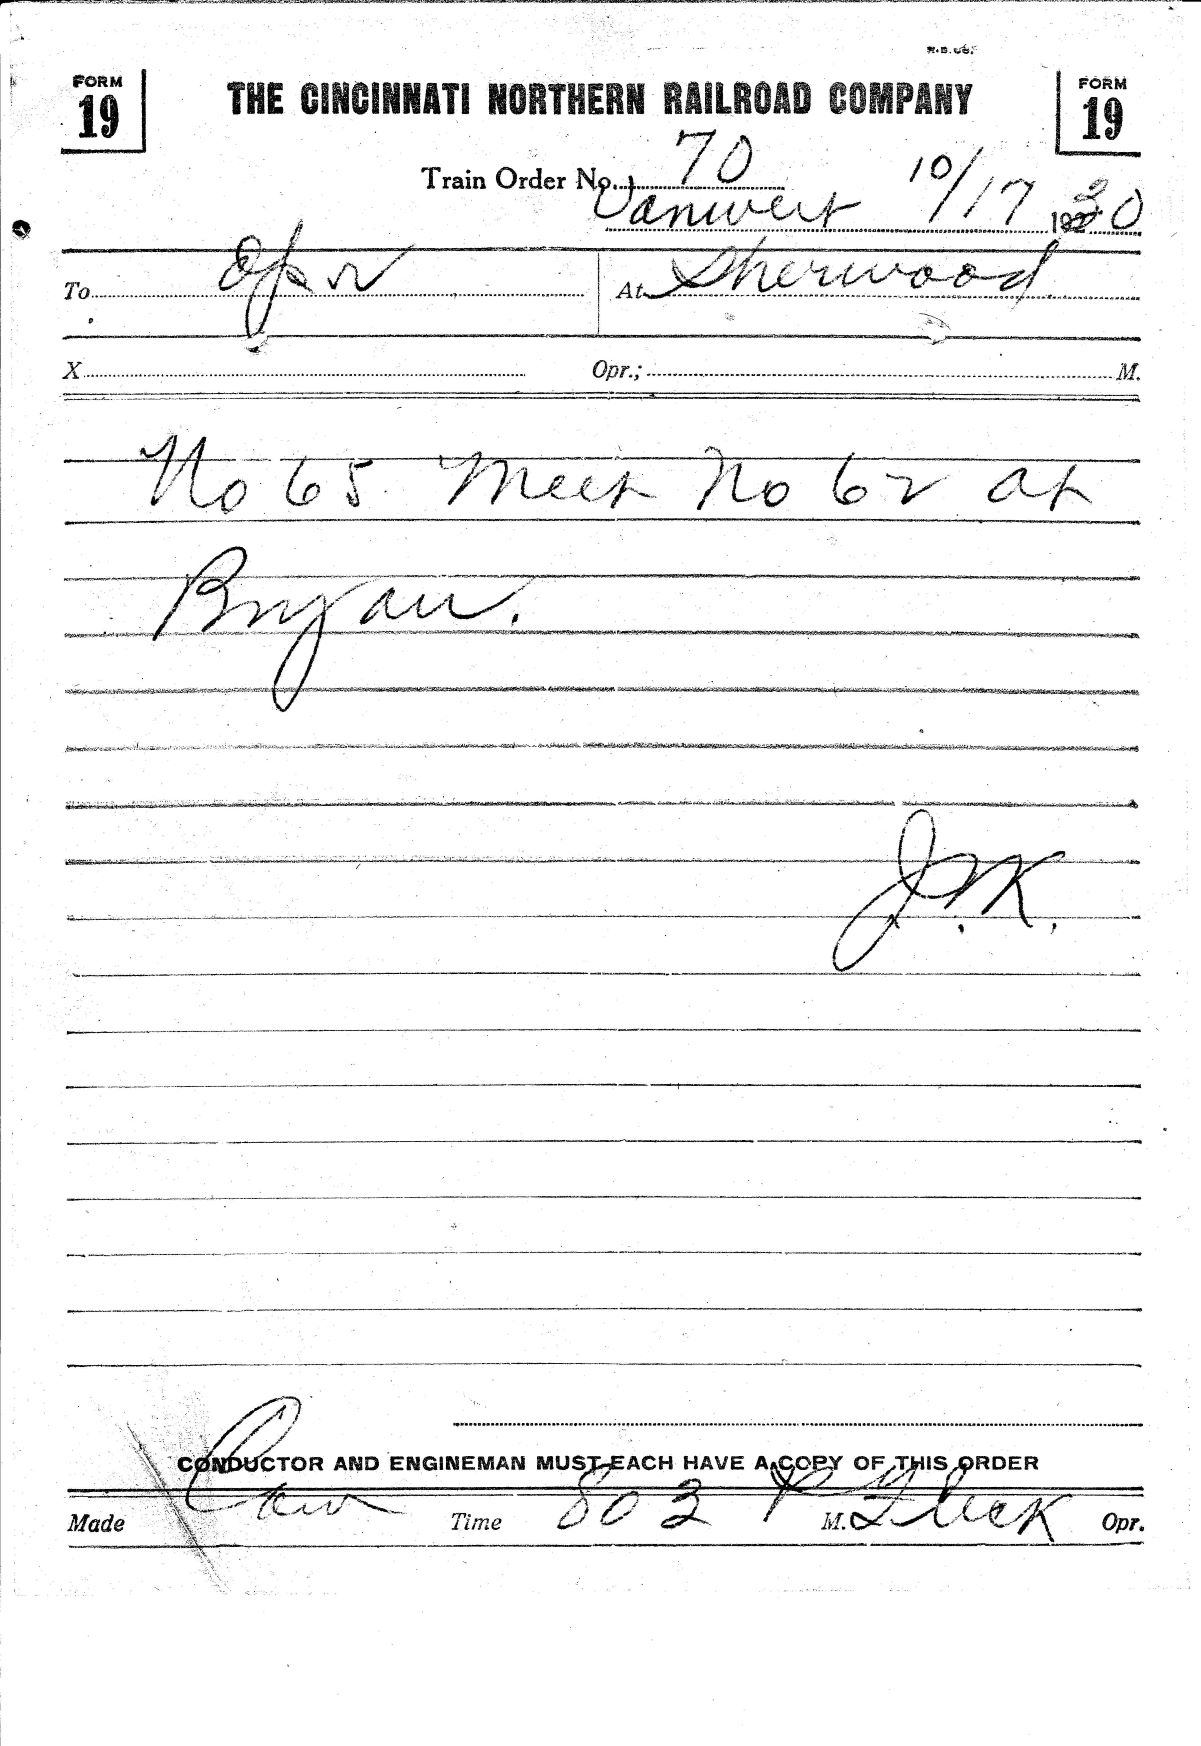 FORM 19 THE CINCINNATI NORTHERN RAILROAD COMPANY FORM 19
Train Order No. 70
Vanwert 10/17 1930
To Opr At Sherwood
X Opr.; M.
No 65 Meet No 62 at
Bryan.
J.K.
CONDUCTOR AND ENGINEMAN MUST EACH HAVE A COPY OF THIS ORDER
Made Com Time 803 P M. Fleck Opr.